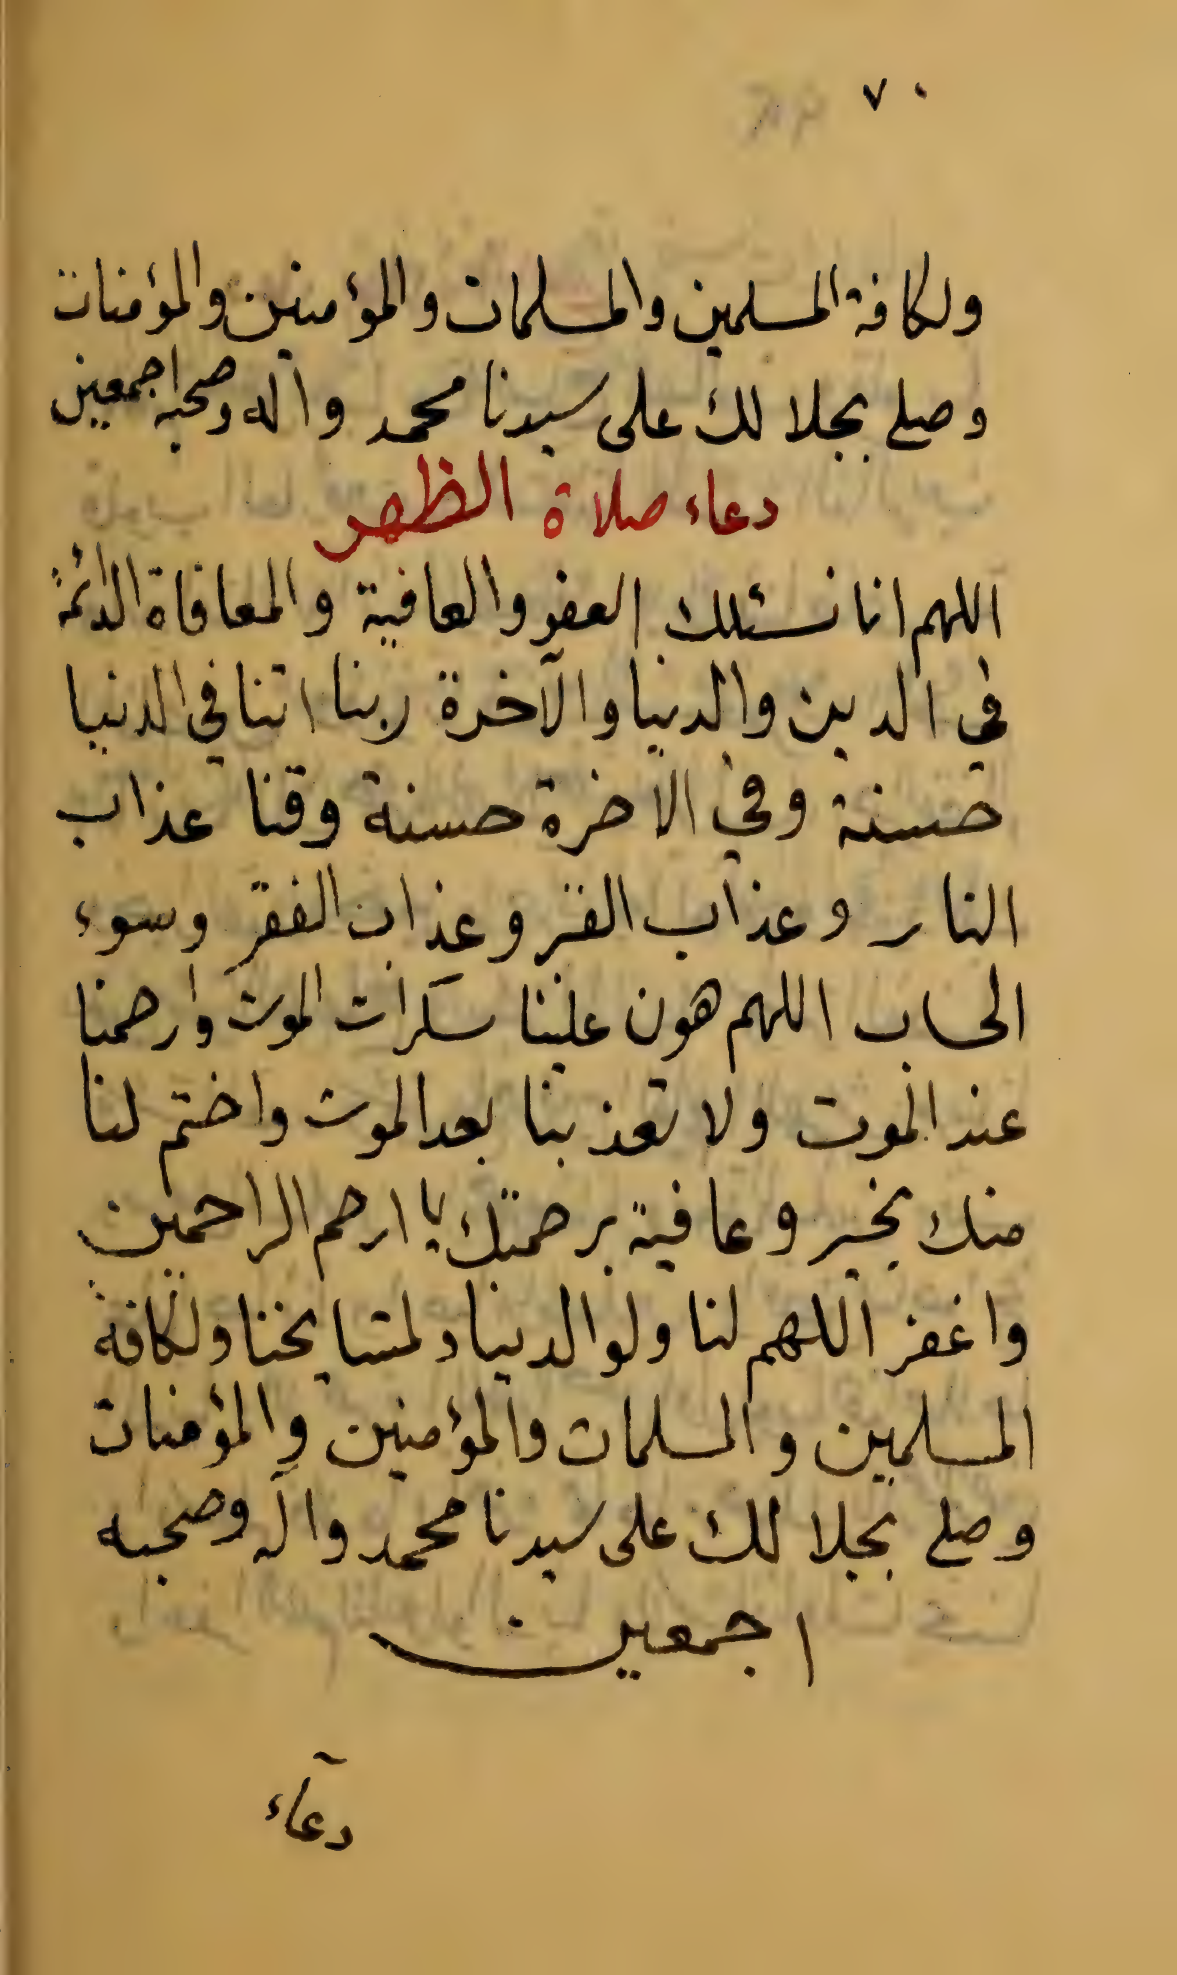 ٧٠
ولكافة المسلمين والمسلمات والمؤمنين والمؤمنات
وصل بجلالك على سيدنا محمد واله وصحبه اجمعين
دعاء صلاة الظهر
اللهم انا نسئلك العفو والعافية والمعافاة الدائمة
في الدين والدنيا والآخرة ربنا اتنا في الدنيا
حسنة وفي الاخرة حسنة وقنا عذاب
النار وعذاب القبر وعذاب الفقر وسوء
الحساب اللهم هون علينا سكرات الموت وارحمنا
عند الموت ولا تعذبنا بعد الموت واختم لنا
منك بخير وعافية برحمتك يا ارحم الراحمين
واغفر اللهم لنا ولوالدينا ولمشايخنا ولكافة
المسلمين والمسلمات والمؤمنين والمؤمنات
وصل بجلالك على سيدنا محمد وآله وصحبه
اجمعين
دعآء